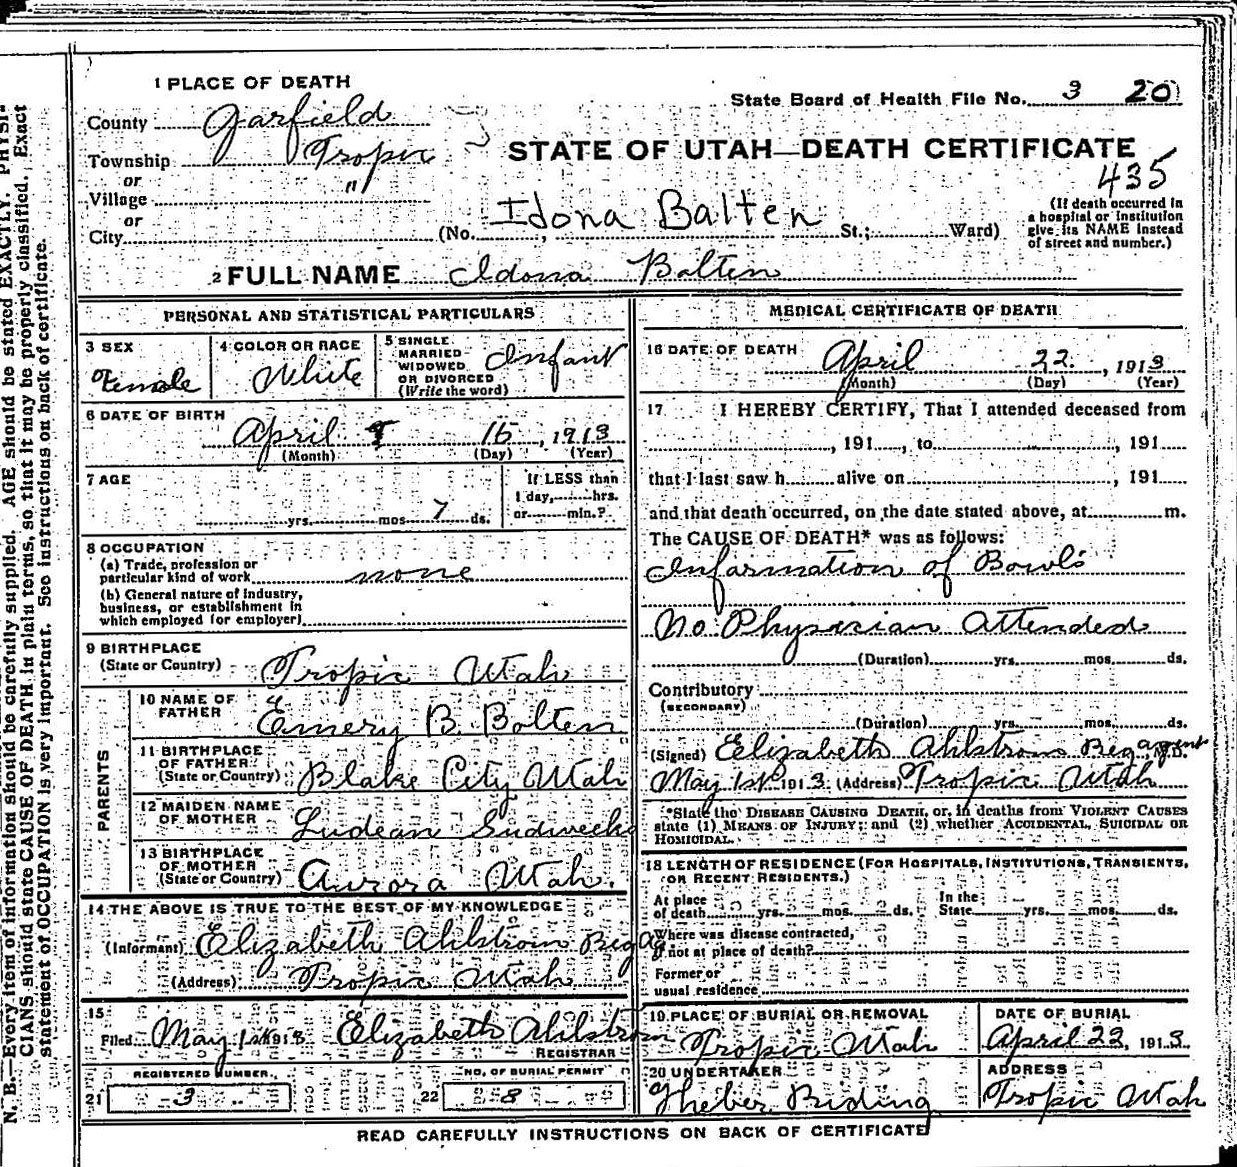 1 PLACE OF DEATH
State Board of Health File No. 3 20
County Garfield
Township Tropic
STATE OF UTAH—DEATH CERTIFICATE
435
or
Village "
or
City (No. , St.; Ward)
Idona Balten
(If death occurred in
a hospital or institution
give its NAME instead
of street and number.)
2 FULL NAME Idona Bolten
PERSONAL AND STATISTICAL PARTICULARS
3 SEX
Female
4 COLOR OR RACE
White
5 SINGLE
MARRIED
WIDOWED
OR DIVORCED
(Write the word)
Infant
6 DATE OF BIRTH
April 15, 1913
(Month) (Day) (Year)
7 AGE
yrs. mos 7 ds.
If LESS than
1 day, hrs.
or min.?
8 OCCUPATION
(a) Trade, profession or
particular kind of work none
(b) General nature of industry,
business, or establishment in
which employed (or employer)
9 BIRTHPLACE
(State or Country) Tropic Utah
PARENTS
10 NAME OF
FATHER
Emery B. Bolten
11 BIRTHPLACE
OF FATHER
(State or Country) Blake City Utah
12 MAIDEN NAME
OF MOTHER
Ludean Sudweeks
13 BIRTHPLACE
OF MOTHER
(State or Country) Aurora Utah.
14 THE ABOVE IS TRUE TO THE BEST OF MY KNOWLEDGE
(Informant) Elizabeth Ahlstrom Reg ag.
(Address) Tropic Utah
15
Filed May 1st 1913 Elizabeth Ahlstrom
REGISTRAR
REGISTERED NUMBER.
21 3
NO. OF BURIAL PERMIT
22 8
MEDICAL CERTIFICATE OF DEATH
16 DATE OF DEATH
April 22, 1913
(Month) (Day) (Year)
17 I HEREBY CERTIFY, That I attended deceased from
, 191 , to , 191
that I last saw h alive on , 191
and that death occurred, on the date stated above, at m.
The CAUSE OF DEATH* was as follows:
Infarmation of Bowls
No Physician Attended
(Duration) yrs. mos. ds.
Contributory
(SECONDARY)
(Duration) yrs. mos. ds.
(Signed) Elizabeth Ahlstrom Reg agent
May 1st 1913 (Address) Tropic Utah
*State the DISEASE CAUSING DEATH, or, in deaths from VIOLENT CAUSES
state (1) MEANS OF INJURY; and (2) whether ACCIDENTAL, SUICIDAL OR
HOMICIDAL.
18 LENGTH OF RESIDENCE (FOR HOSPITALS, INSTITUTIONS, TRANSIENTS,
OR RECENT RESIDENTS.)
At place
of death yrs. mos. ds.
In the
State yrs. mos. ds.
Where was disease contracted,
if not at place of death?
Former or
usual residence
19 PLACE OF BURIAL OR REMOVAL
Tropic Utah
DATE OF BURIAL
April 23, 1913
20 UNDERTAKER
Heber Riding
ADDRESS
Tropic Utah
READ CAREFULLY INSTRUCTIONS ON BACK OF CERTIFICATE
N. B.—Every item of information should be carefully supplied. AGE should be stated EXACTLY. PHYSI-
CIANS should state CAUSE OF DEATH in plain terms, so that it may be properly classified. Exact
statement of OCCUPATION is very important. See instructions on back of certificate.